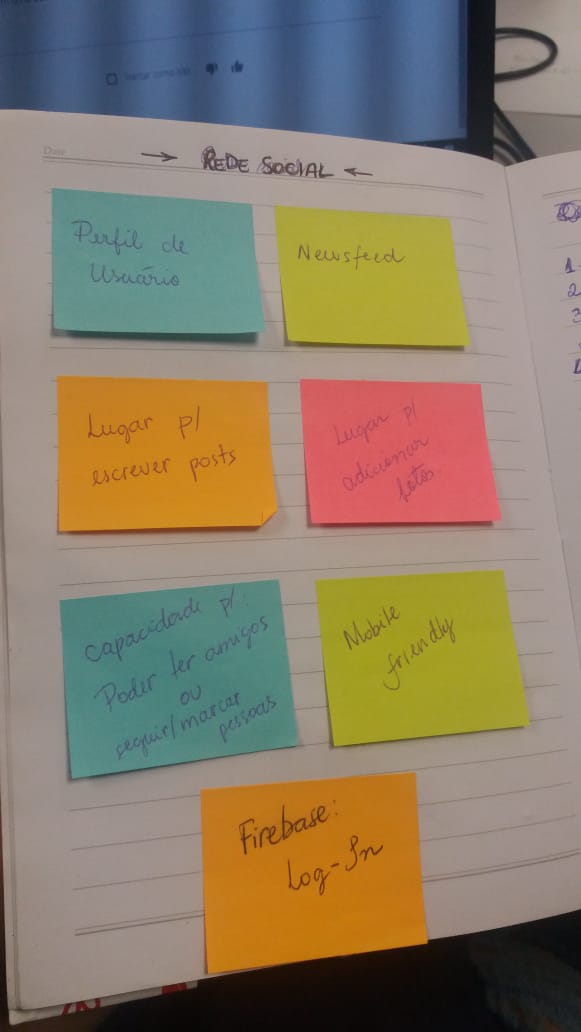 Marcar como lido
Date
→ REDE SOCIAL ←
Perfil de
Usuário
Newsfeed
Lugar p/
escrever posts
Lugar p/
adicionar
fotos
Capacidade p/:
Poder ter amigos
ou
seguir/marcar
pessoas
Mobile
friendly
Firebase:
Log-In
1-
2
3